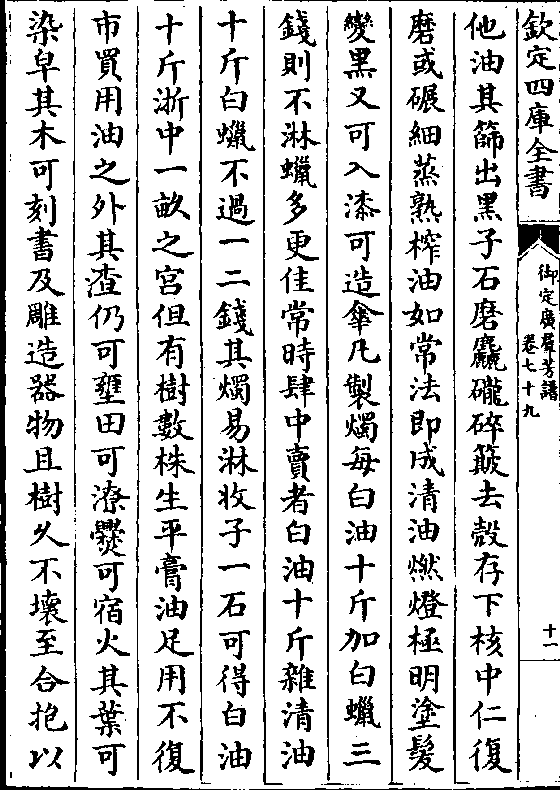 欽定四庫全書
御定廣羣芳譜
卷七十九
十一
他油其篩出黑子石磨麤礲碎簸去殼存下核中仁復
磨或碾細蒸熟榨油如常法即成清油燃燈極明塗髮
變黑又可入漆可造傘凡製燭每白油十斤加白蠟三
錢則不淋蠟多更佳常時肆中賣者白油十斤雜清油
十斤白蠟不過一二錢其燭易淋收子一石可得白油
十斤浙中一畝之宫但有樹數株生平膏油足用不復
市買用油之外其渣仍可壅田可潦爨可宿火其葉可
染皁其木可刻書及雕造器物且樹久不壞至合抱以